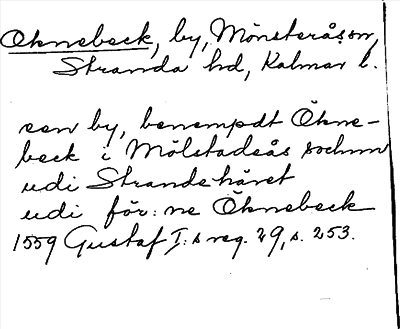 Öknebeck, by, Mönsterås sn,
Stranda hd, Kalmar l.
een by, benempdt Ökne-
beck i Mölstadeås sochnn
udi Strande häret
udi för:ne Öknebeck
1559 Gustaf I:s reg. 29, s. 253.